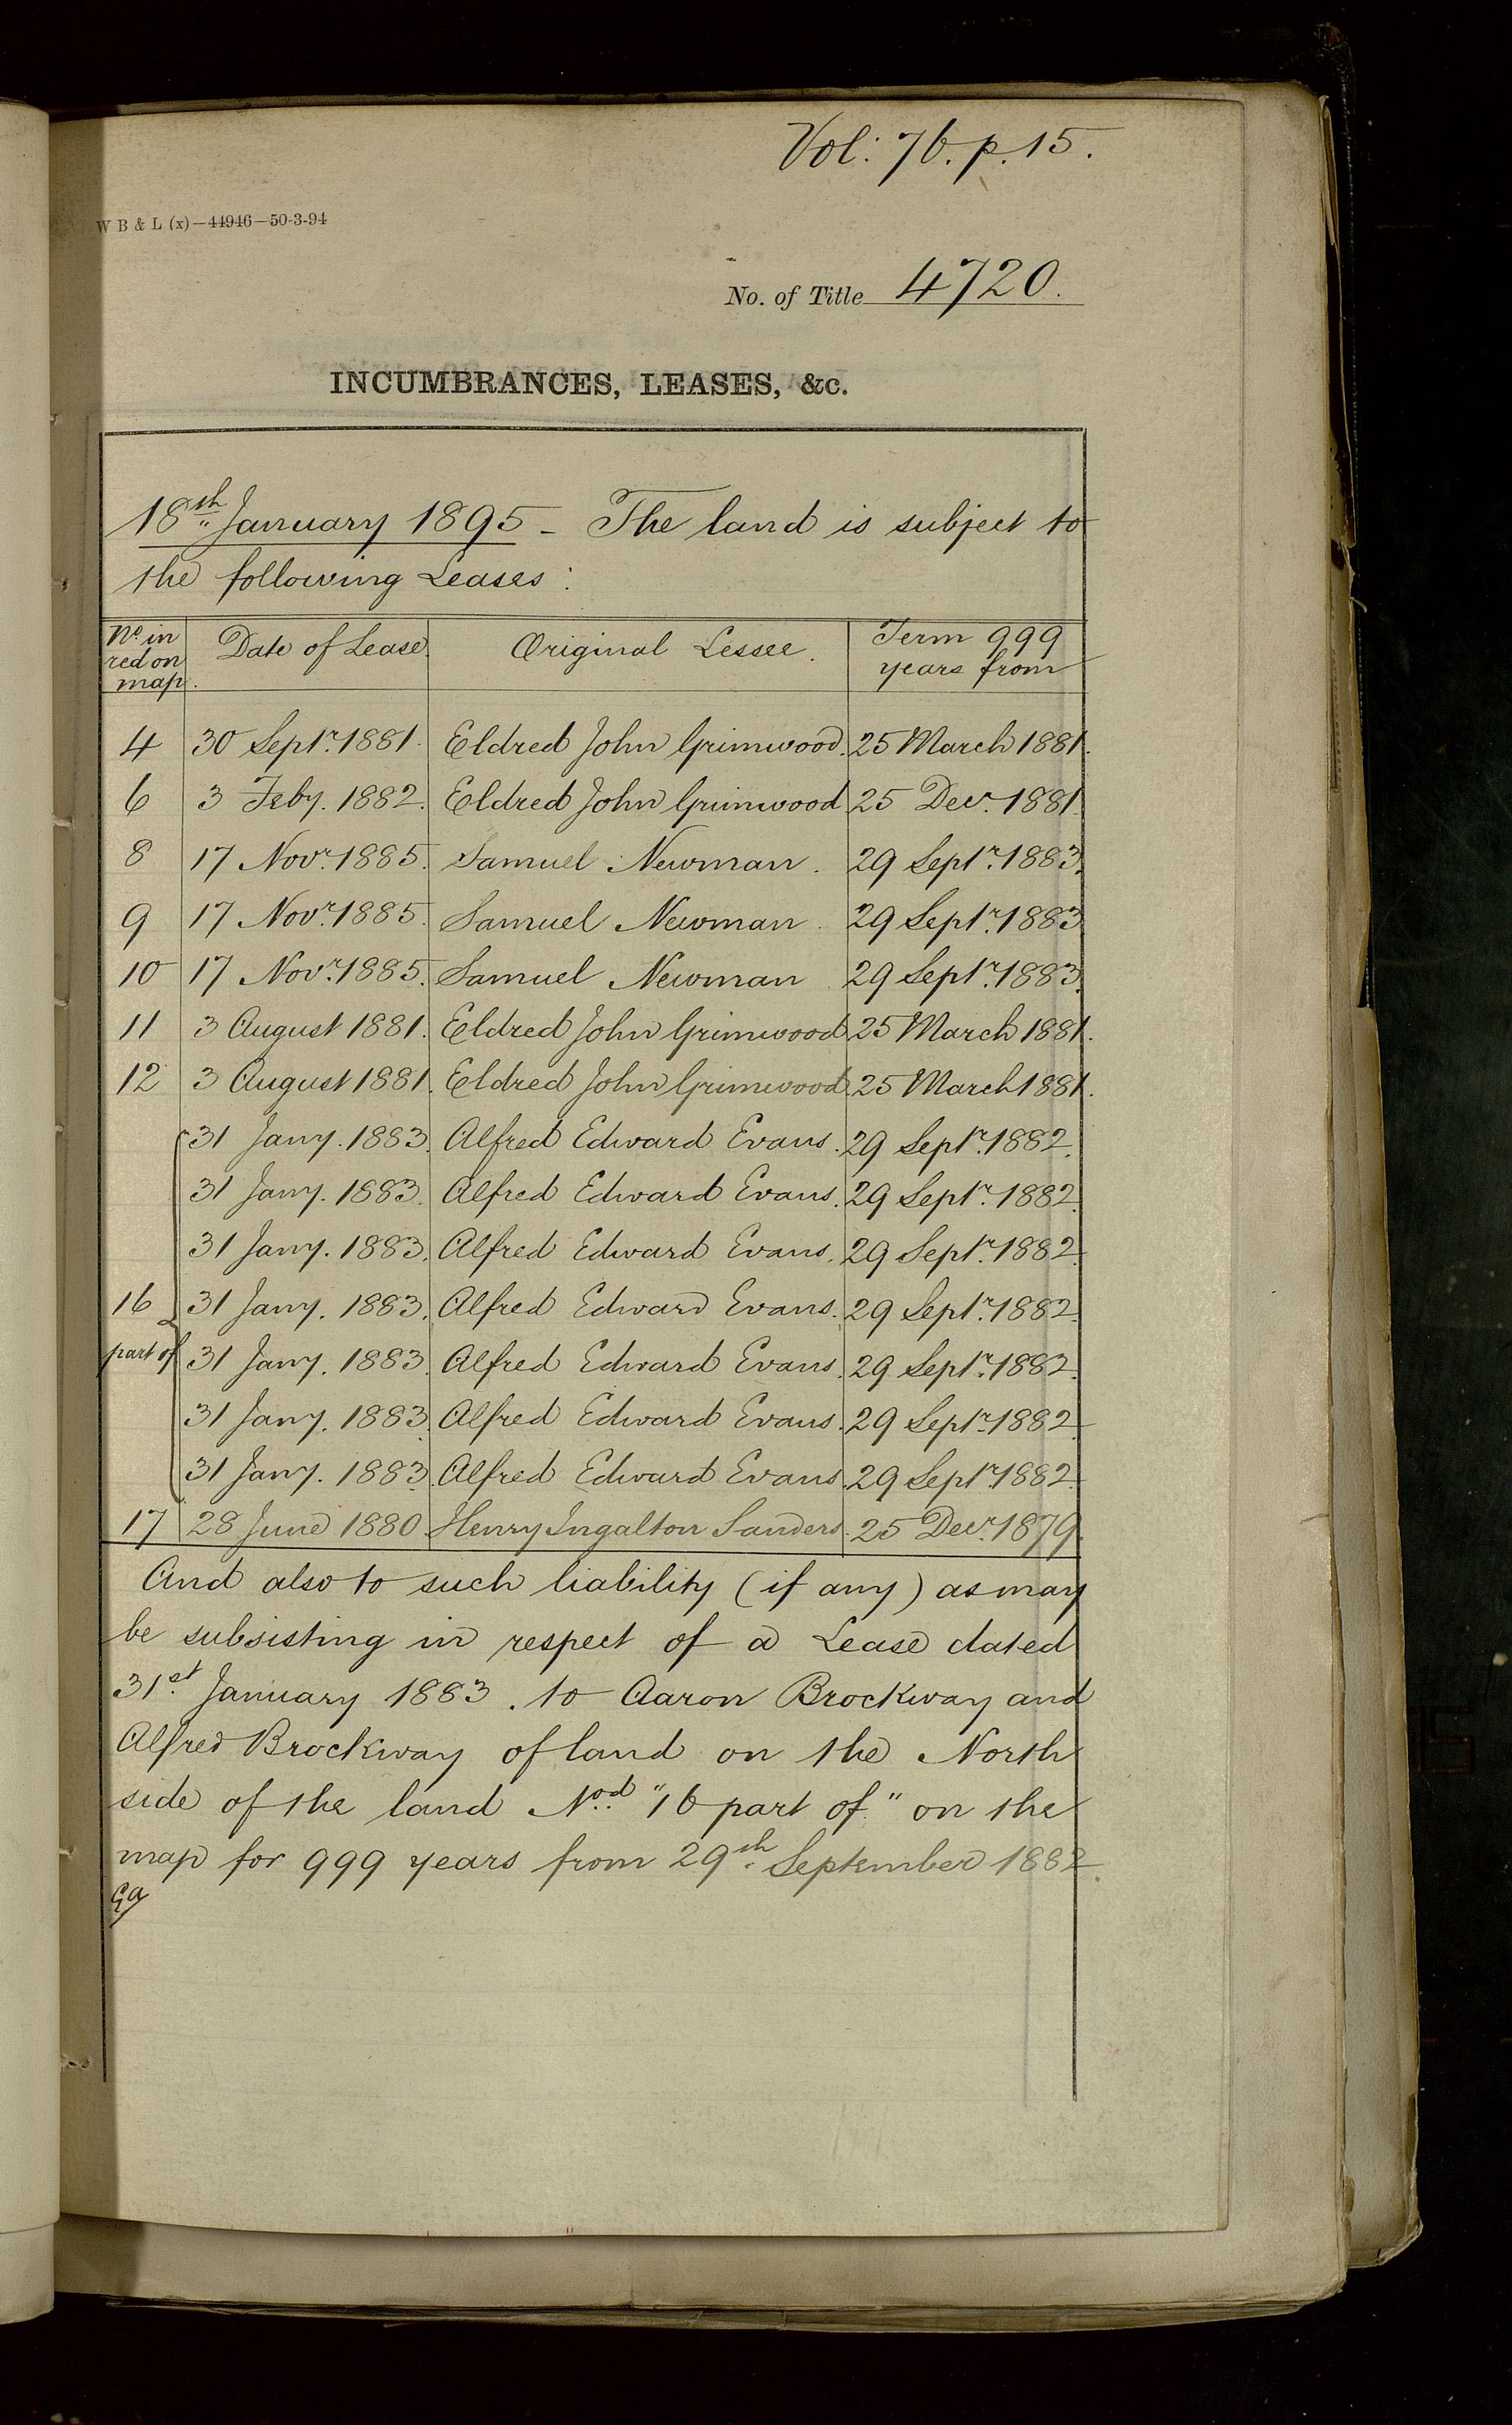 Vol: 76. p. 15.
W B & L (x)—44946—50-3-94
No. of Title 4720.
INCUMBRANCES, LEASES, &c.
18th January 1895 - The land is subject to
the following Leases:
No in red on map. Date of Lease. Original Lessee. Term 999 years from
4 30 Septr. 1881. Eldred John Grimwood. 25 March 1881.
6 3 Feby. 1882. Eldred John Grimwood 25 Decr. 1881.
8 17 Novr. 1885. Samuel Newman. 29 Septr. 1883.
9 17 Novr. 1885. Samuel Newman. 29 Septr. 1883
10 17 Novr. 1885. Samuel Newman 29 Septr. 1883.
11 3 August 1881. Eldred John Grimwood 25 March 1881.
12 3 August 1881. Eldred John Grimwood. 25 March 1881.
31 Jany. 1883. Alfred Edward Evans. 29 Septr. 1882.
31 Jany. 1883. Alfred Edward Evans. 29 Septr. 1882.
31 Jany. 1883. Alfred Edward Evans. 29 Septr. 1882.
16 31 Jany. 1883. Alfred Edward Evans. 29 Septr. 1882.
part of 31 Jany. 1883. Alfred Edward Evans. 29 Septr. 1882.
31 Jany. 1883. Alfred Edward Evans. 29 Septr. 1882.
31 Jany. 1883. Alfred Edward Evans. 29 Septr. 1882.
17 28 June 1880 Henry Ingalton Sanders. 25 Decr. 1879
And also to such liability (if any) as may
be subsisting in respect of a Lease dated
31st January 1883. to Aaron Brockway and
Alfred Brockway of land on the North
side of the land Nod. "16 part of." on the
map for 999 years from 29th September 1882.